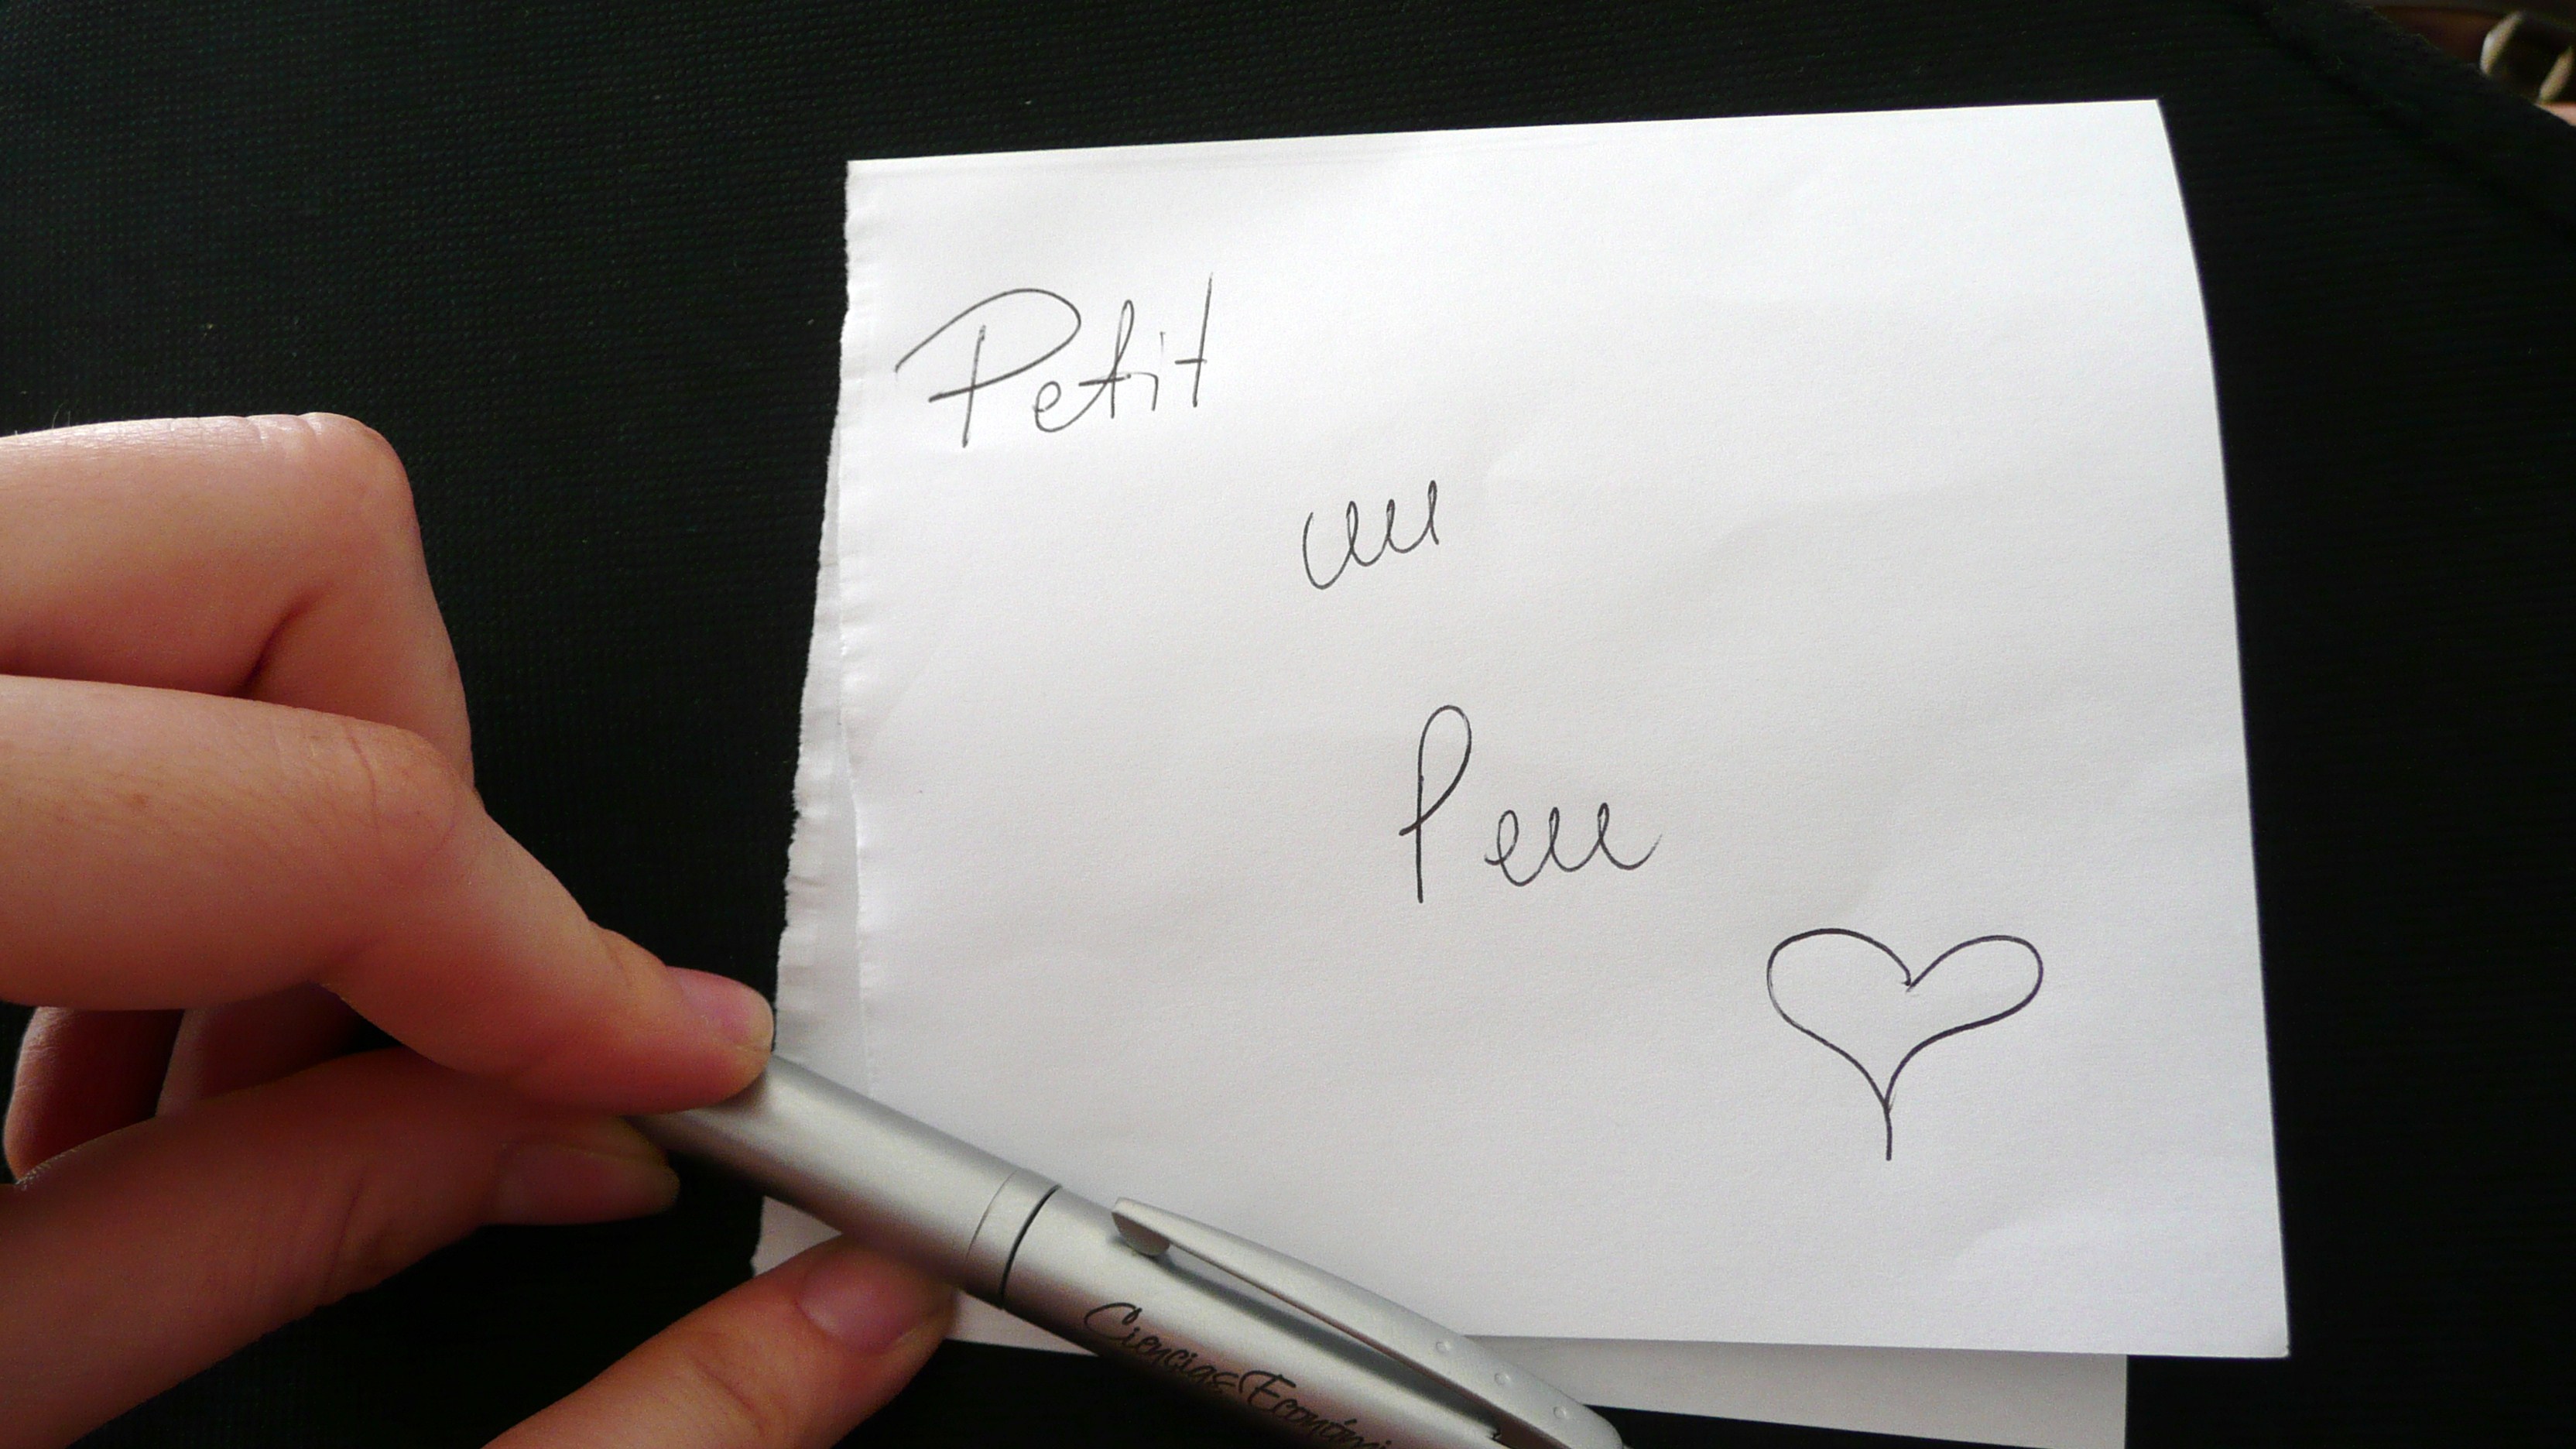 Petit
un
Peu
Ciencias Económi